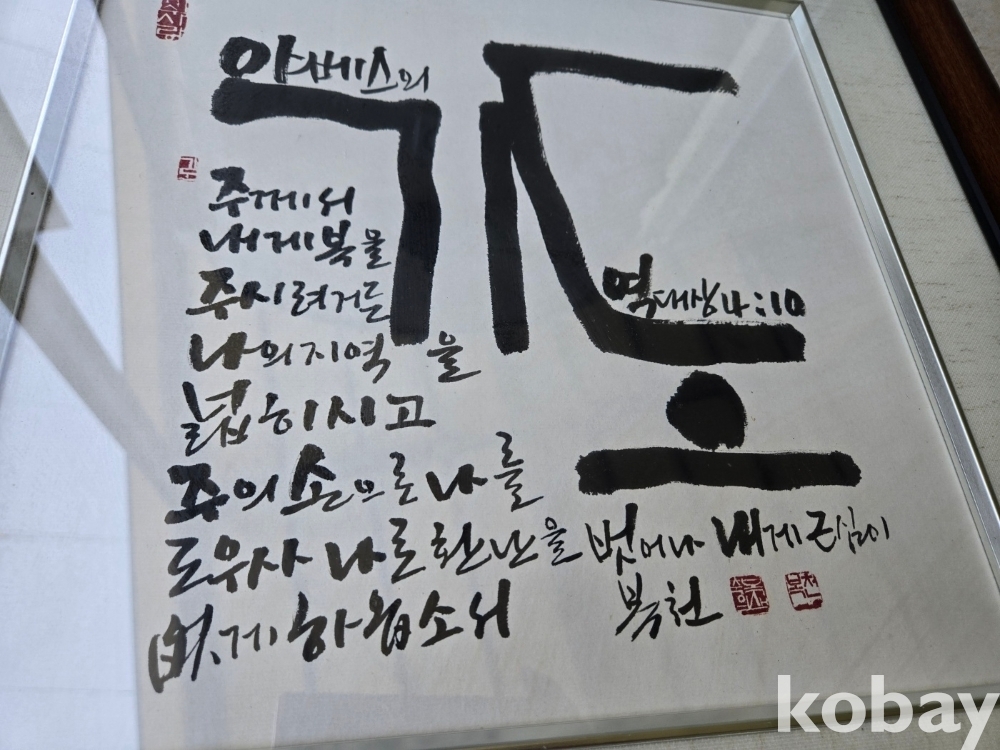 야베스의
기도
역대상 4:10
주께서
내게 복을
주시려거든
나의 지역을
넓히시고
주의 손으로 나를
도우사 나로 환난을 벗어나 내게 근심이
없게 하옵소서
복천
kobay